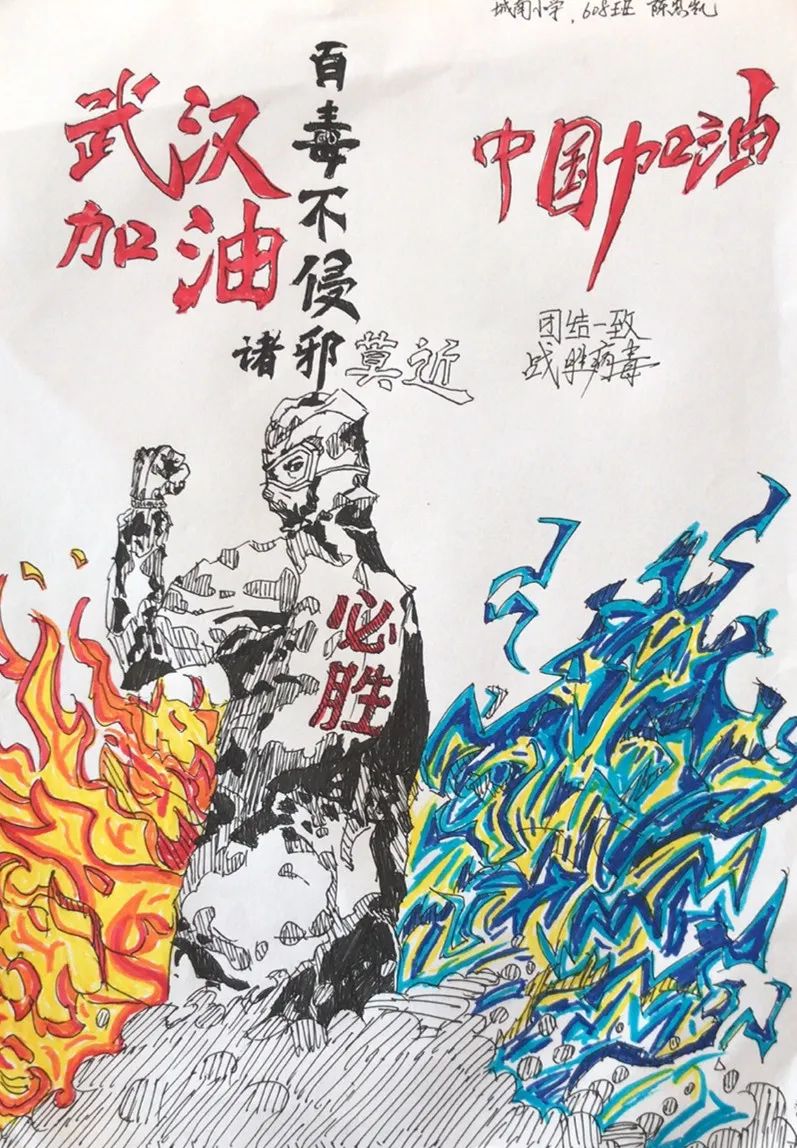 城南小学，608班 陈思凯
武汉
加油
百毒不侵
诸邪莫近
中国加油
团结一致
战胜病毒
必胜